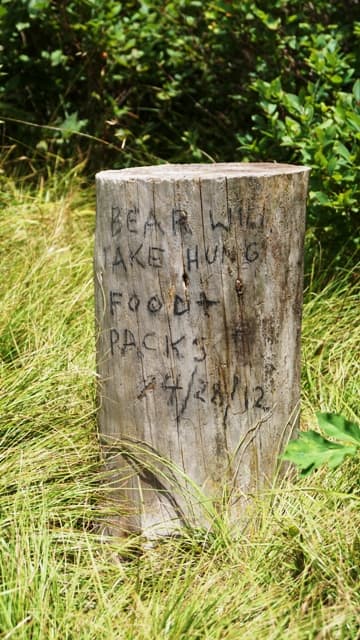 BEAR WILL
TAKE HUNG
FOOD +
PACKS
4/28/12